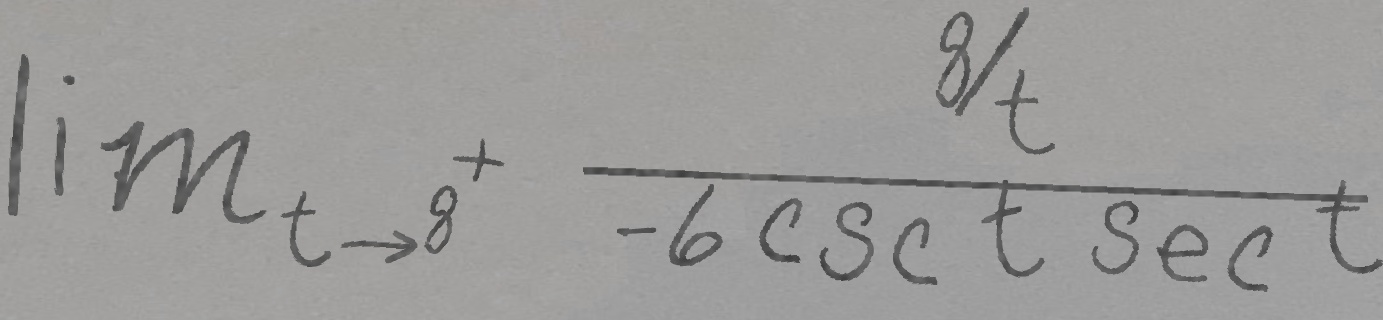 \lim_{t \to 8^+} \frac{8/t}{-6 \csc t \sec t}